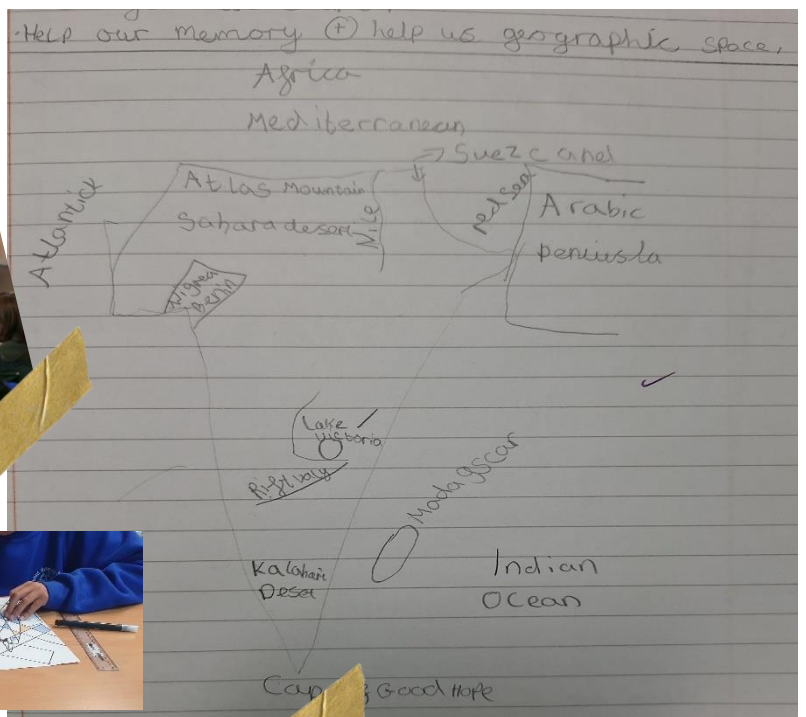 ·Help our memory (+) help us geographic space,
Africa
Mediterranean
→ Suez canel
Atlas Mountain
Atlantick
Sahara desert
Nile
red sea
Arabic
peniusla
Benin
Lake
Victoria
Rift valy
Madagscar
Kalahari
Deser
Indian
Ocean
Cap
Good Hope